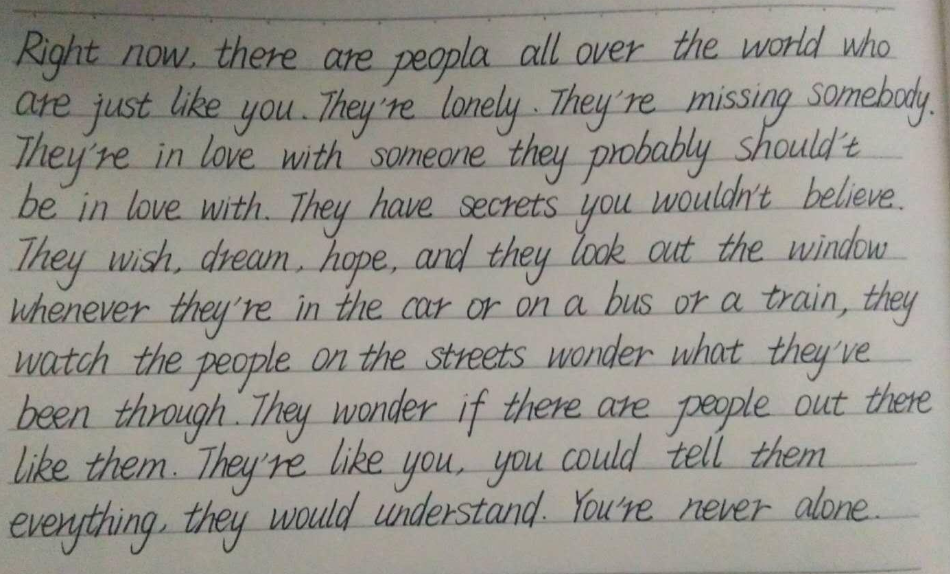 Right now, there are peopla all over the world who
are just like you. They're lonely. They're missing somebody.
They're in love with someone they probably should't
be in love with. They have secrets you wouldn't believe.
They wish, dream, hope, and they look out the window
whenever they're in the car or on a bus or a train, they
watch the people on the streets wonder what they've
been through. They wonder if there are people out there
like them. They're like you, you could tell them
everything, they would understand. You're never alone.